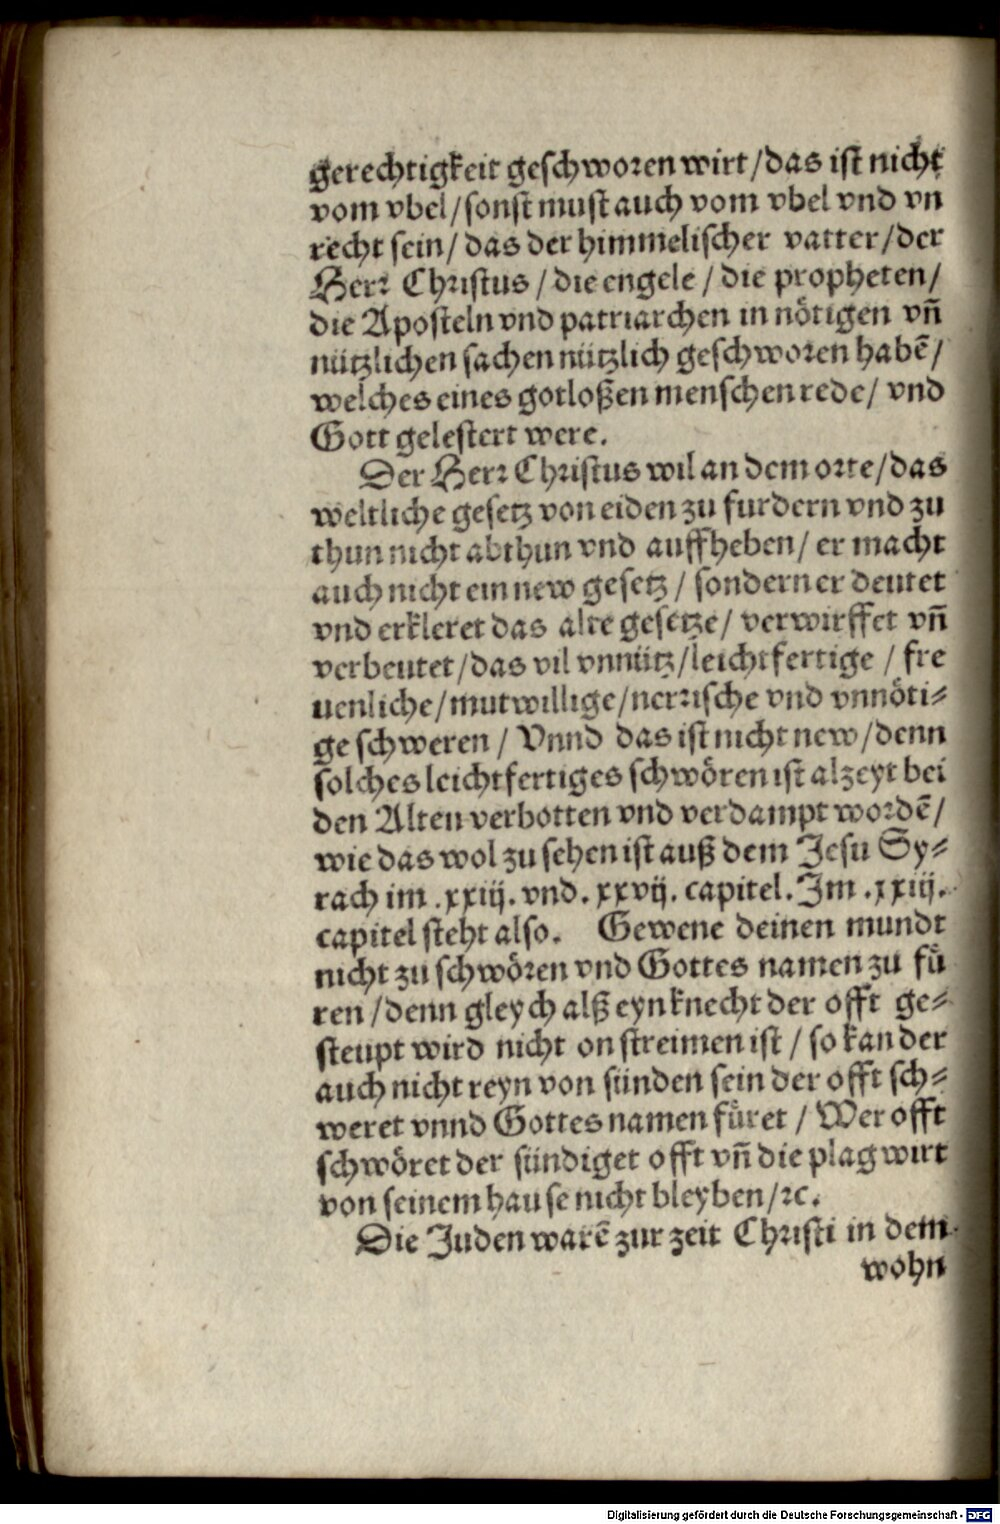 gerechtigkeit geschworen wirt/das ist nicht
vom vbel/sonst must auch vom vbel vnd vn
recht sein/ das der himmelischer vatter/der
Herr Christus / die engele / die propheten/
die Aposteln vnd patriarchen in nötigen vñ
nützlichen sachen nützlich geschworen habẽ/
welches eines gotloßen menschen rede/ vnd
Gott gelestert were.
Der Herr Christus wil an dem orte/das
weltliche gesetz von eiden zu furdern vnd zu
thun nicht abthun vnd auffheben/ er macht
auch nicht ein new gesetz / sondern er deutet
vnd erkleret das alte gesetze/ verwirffet vñ
verbeutet/das vil vnnütz/leichtfertige / fre
uenliche/mutwillige/nerrische vnd vnnöti⸗
ge schweren / Vnnd das ist nicht new/denn
solches leichtfertiges schwören ist alzeyt bei
den Alten verbotten vnd verdampt wordẽ/
wie das wol zu sehen ist auß dem Jesu Sy⸗
rach im .xxiij. vnd .xxvij. capitel. Im .xxiij.
capitel steht also. Gewene deinen mundt
nicht zu schwören vnd Gottes namen zu fü
ren /denn gleych alß eyn knecht der offt ge⸗
steupt wird nicht on streimen ist / so kan der
auch nicht reyn von sünden sein der offt sch⸗
weret vnnd Gottes namen füret / Wer offt
schwöret der sündiget offt vñ die plag wirt
von seinem hause nicht bleyben/ꝛc.
Die Juden warẽ zur zeit Christi in dem
wohn
Digitalisierung gefördert durch die Deutsche Forschungsgemeinschaft - DFG